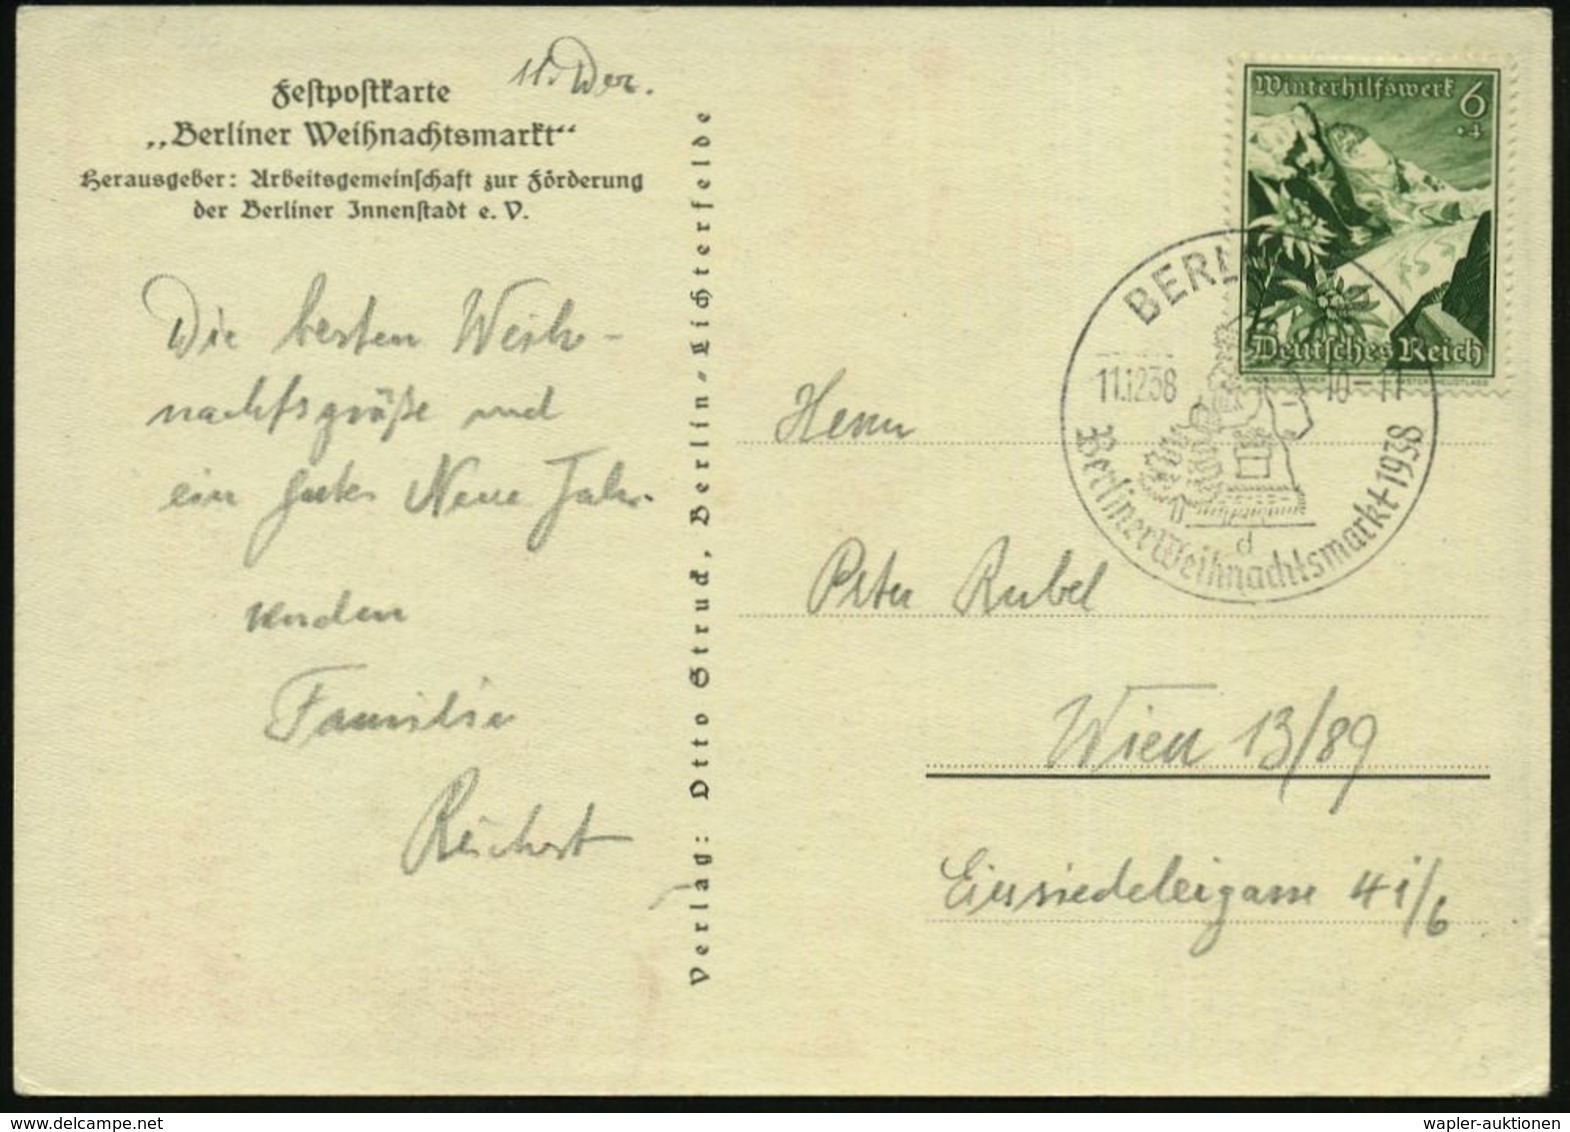 Festpostkarte
„Berliner Weihnachtsmarkt“
Herausgeber: Arbeitsgemeinschaft zur Förderung
der Berliner Innenstadt e. V.
11. Dez.
Die besten Weih-
nachtsgrüße und
ein gutes Neue Jahr.
senden
Familie
Reichert
Verlag: Otto Struck, Berlin-Lichterfelde
Winterhilfswerk 6
+4
Deutsches Reich
BERLIN
11.12.38
10-11
d
Berliner Weihnachtsmarkt 1938
Herrn
Peter Rubel
Wien 13/89
Einsiedeleigasse 41/6
wapler-auktionen